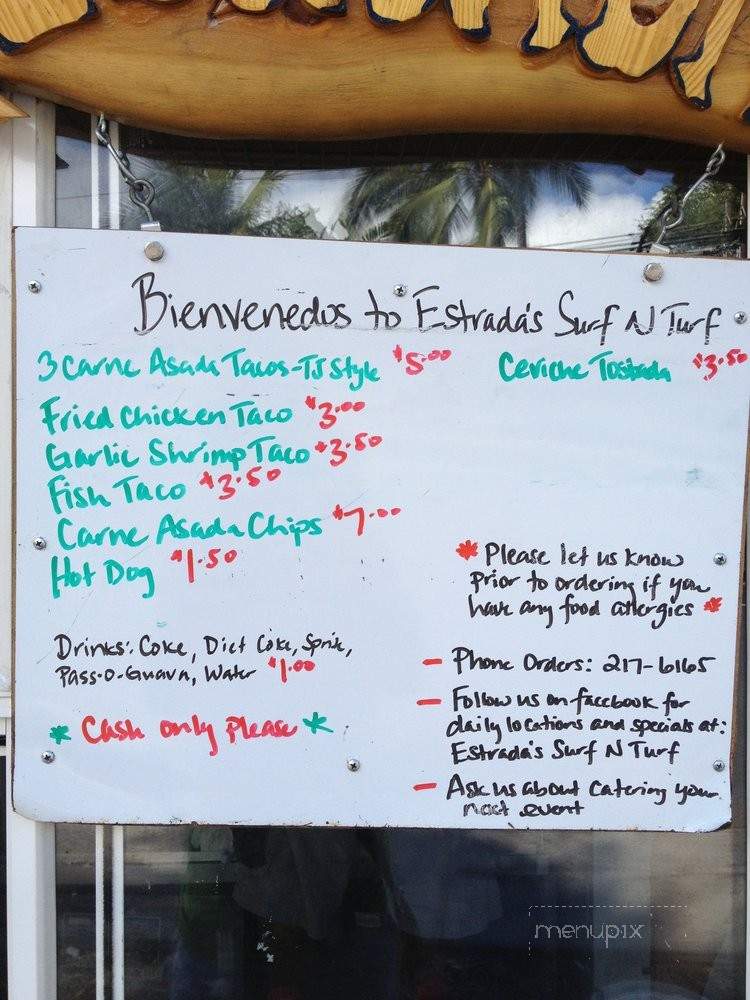 Bienvenedos to Estrada's Surf N Turf
3 Carne Asada Tacos-TJ Style $5.00
Ceviche Tostada $3.50
Fried Chicken Taco $3.00
Garlic Shrimp Taco $3.50
Fish Taco $3.50
Carne Asada Chips $7.00
Hot Dog $1.50
Drinks: Coke, Diet Coke, Sprite,
Pass-O-Guava, Water $1.00
* Cash only please *
* Please let us know
prior to ordering if you
have any food allergies *
- Phone Orders: 217-6165
- Follow us on facebook for
daily locations and specials at:
Estrada's Surf N Turf
- Ask us about catering your
next event
menupix